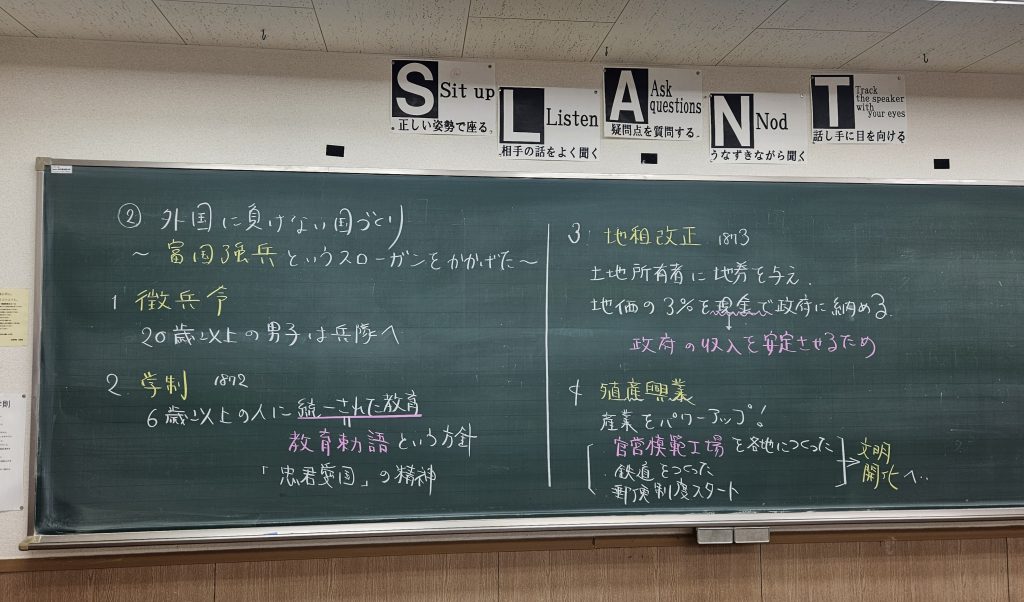 S Sit up
正しい姿勢で座る。
L Listen
相手の話をよく聞く
A Ask questions
疑問点を質問する。
N Nod
うなずきながら聞く
T Track the speaker with your eyes
話し手に目を向ける
② 外国に負けない国づくり
～富国強兵というスローガンをかかげた～
1 徴兵令
20歳以上の男子は兵隊へ
2. 学制 1872
6歳以上の人に統一された教育
教育勅語という方針
「忠君愛国」の精神
3. 地租改正 1873
土地所有者に地券を与え、
地価の3%を現金で政府に納める
政府の収入を安定させるため
4 殖産興業
産業をパワーアップ!
官営模範工場を各地につくった
鉄道をつくった
郵便制度スタート
文明
開化へ..